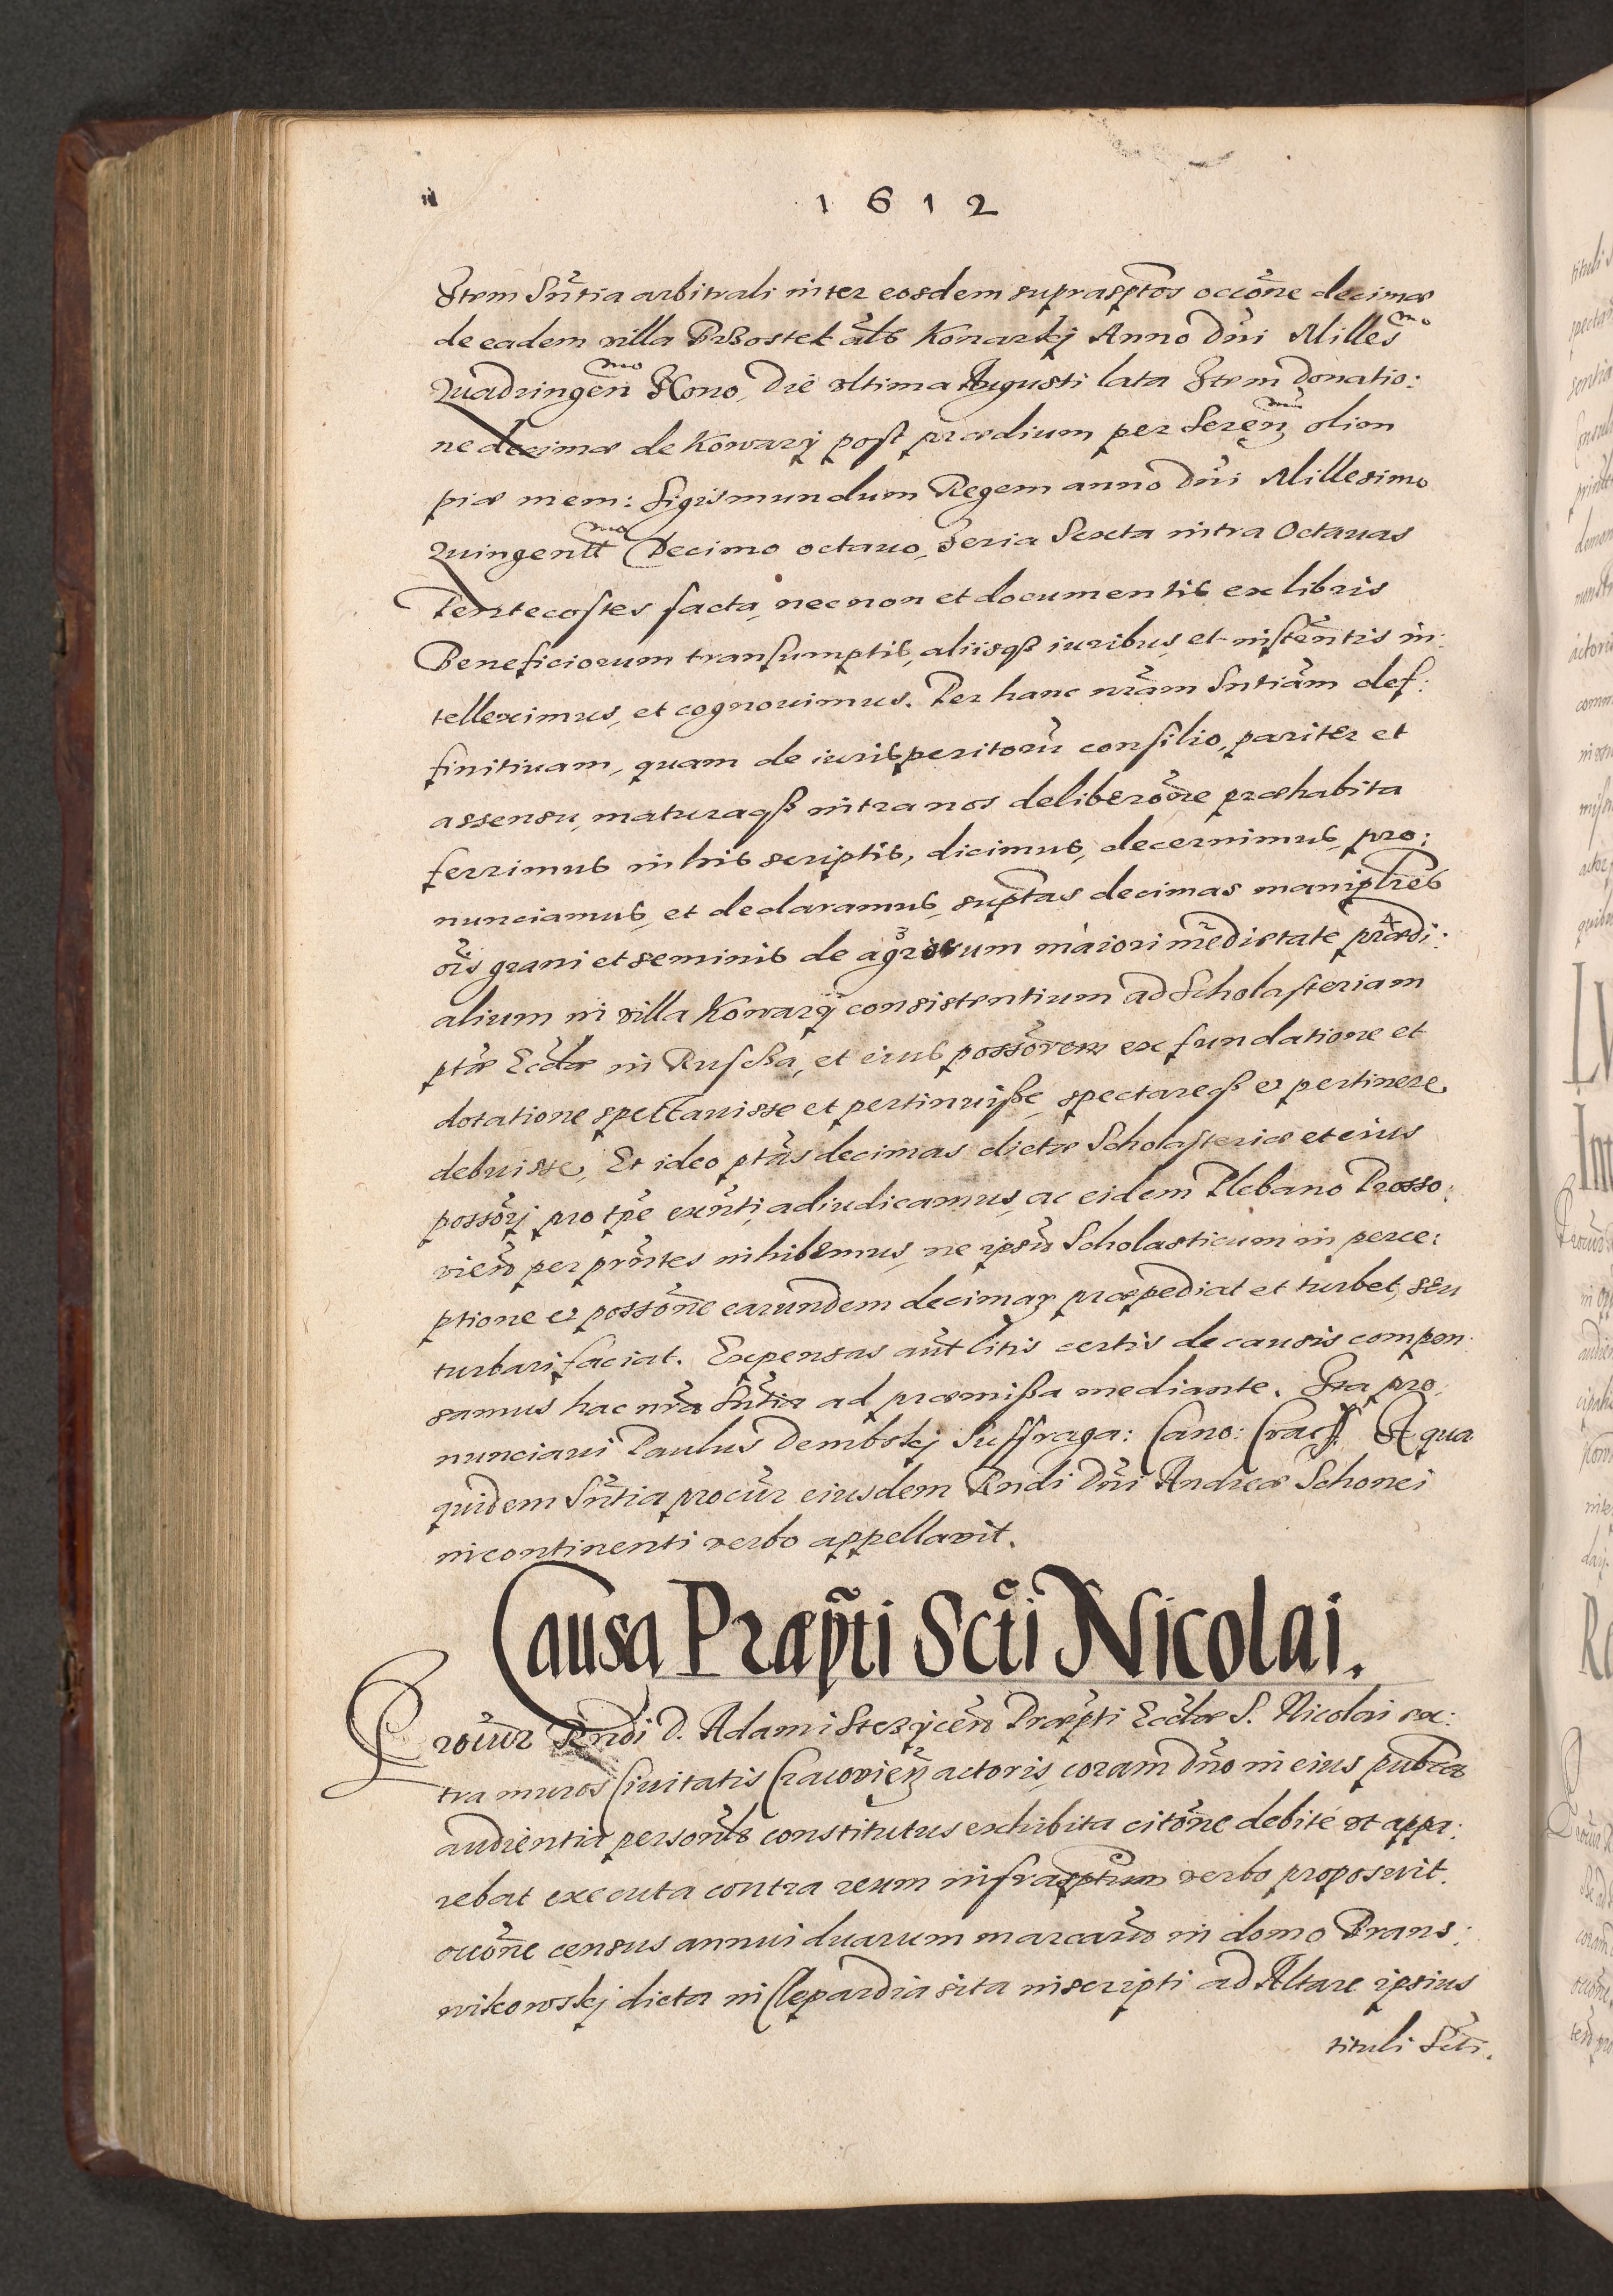 1612
Item Sñtia arbitrali inter eosdem suprascptos occõne decimæ
de eadem villa Przostek als Konarskj Anno Dñi Milles^mo
Quadringen^mo Nono, Die vltima Augusti lata Item Donatio:
ne decimæ de Kowary post prædium per Seren^mũ olim
piæ mem: Sigismundum Regem anno Dñi Millesimo
Quingentt^mo Decimo octauo, Feria Sexta intra Octauas
Pentecostes facta, necnon et documentis ex libris
Beneficiorum transumptis, aliisqß iuribus, et instẽntis in:
telleximus, et cognouimus. Per hanc nrãm Sntiãm def:
finitiuam, quam de iurisperitorũ consilio, pariter et
assensu, maturaqß intra nos deliberõne præhabita
ferrimus in his scriptis, dicimus, decernimus, pro:
nunciamus, et declaramus, suptas decimas maniplres
oĩs grani et seminis de agrorum maiori medietate prædi:
alium in villa Kowary consistentium ad Scholasteriam
ptæ Ecclæ in Ruscßa, et eius possõrem ex fundatione et
dotatione spectauisse et pertinuiße, spectareqß et pertinere
debuisse, Et ideo ptas decimas dictæ Scholasteriæ et eius
possõrj pro tpe exñti, adiudicamus, ac eidem Plebano Prosso:
vieñ per pñtes inhibemus, ne ipsũ Scholasticum in perce:
ptione et possõne earundem decimarᷓ præpediat et turbet, seu
turbari faciat. Expensas aut litis certis de causis compen:
samus hac nrã Sñtia ad præmißa mediante. Ita pro:
nunciaui Paulus Dembskj Suffraga: Cano: Crac. A qua
quidem Sñtia procur eiusdem Rndi Dñi Andreæ Schonei
incontinenti verbo appellavit.
Causa Præpti Scti Nicolai.
Procur Rndi D. Adami Stezycen Præpti Ecclæ S. Nicolai ex:
tra muros Ciuitatis Cracovieñ actoris, coram Dño in eius publca
audientia personls constitutus exhibita citõne debite vt appa:
rebat executa contra reum infrascptum verbo proposuit.
occõne census annui duarum marcarũ in domo Brans:
wikowskj dicta in Clepardia sita inscripti ad Altare ipsius
tituli Scti.